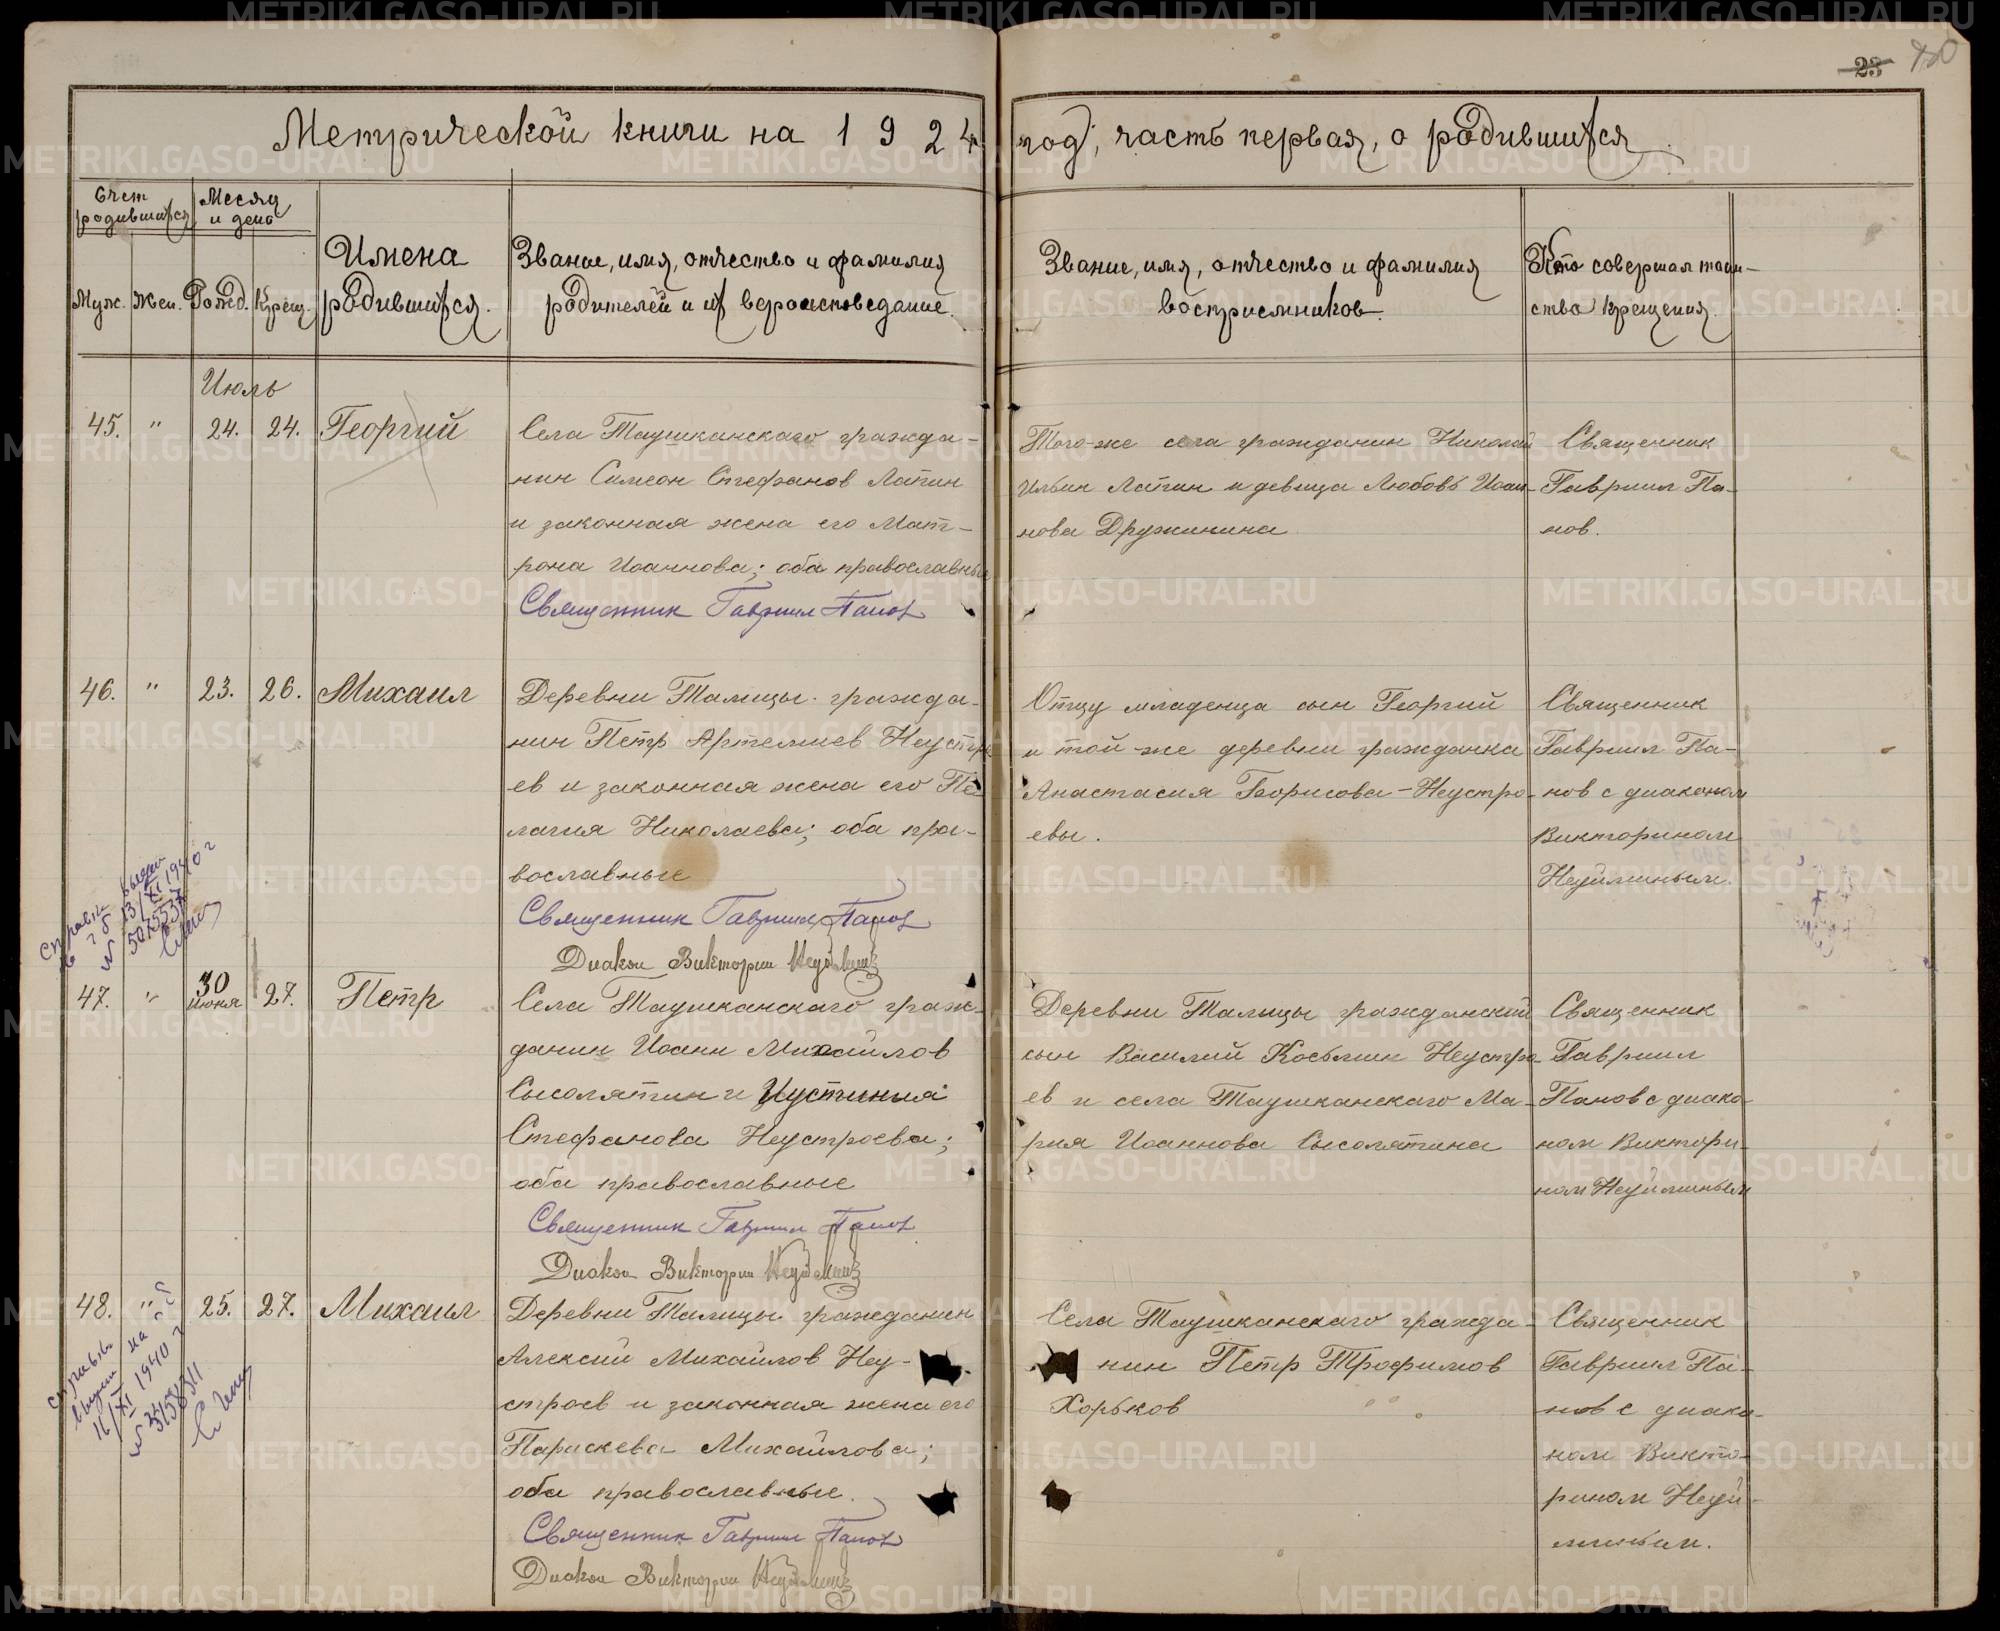 23
Метрической книги на 1924 год, часть первая, о родившихся.
Счет родившихся
Месяц и день
Муж. Жен. Рожд. Крещ.
Имена родившихся.
Звание, имя, отчество и фамилия
родителей и их вероисповедание.
Звание, имя, отчество и фамилия
восприемников.
Кто совершал таин-
ство крещения.
Июль
45. " 24. 24. Георгий
Села Таушканскаго гражда-
нин Симеон Стефанов Лапин
и законная жена его Мат-
рона Иоаннова; оба православные
Священник Гавриил Панов
Того-же села гражданин Николай
Ильин Лапин и девица Любовь Иоан-
нова Дружинина
Священник
Гавриил Па-
нов.
46. " 23. 26. Михаил
Деревни Талицы гражда-
нин Петр Артемиев Неустро
ев и законная жена его Пе
лагия Николаева; оба пра-
вославные
Священник Гавриил Панов
Диакон Викторин Неуйминъ
Отцу младенца сын Георгий
и той-же деревни гражданка
Анастасия Борисова-Неустро-
евы.
Священник
Гавриил Па-
нов с диаконом
Викторином
Неуйминым.
Справка
выдан
13/XI 1940 г
47. " 30 июня 27. Петр
Села Таушканскаго граж-
данин Иоанн Михайлов
Сысолятин и Иустиния
Стефанова Неустроева;
оба православные
Священник Гавриил Панов
Диакон Викторин Неуйминъ
Деревни Талицы гражданский
сын Василий Косьмин Неустро-
ев и села Таушканскаго Ма-
рия Иоаннова Сысолятина
Священник
Гавриил
Панов с диако-
ном Виктори-
ном Неуйминым
48. " 25. 27. Михаил
Деревни Талицы гражданин
Алексий Михайлов Неу-
строев и законная жена его
Параскева Михайлова;
оба православные.
Священник Гавриил Панов
Диакон Викторин Неуйминъ
Села Таушканскаго гражда-
нин Петр Трофимов
Хорьков
Священник
Гавриил Па-
нов с диако-
ном Викто-
рином Неуй-
миным.
Справка
выдан на
16/XI 1940 г